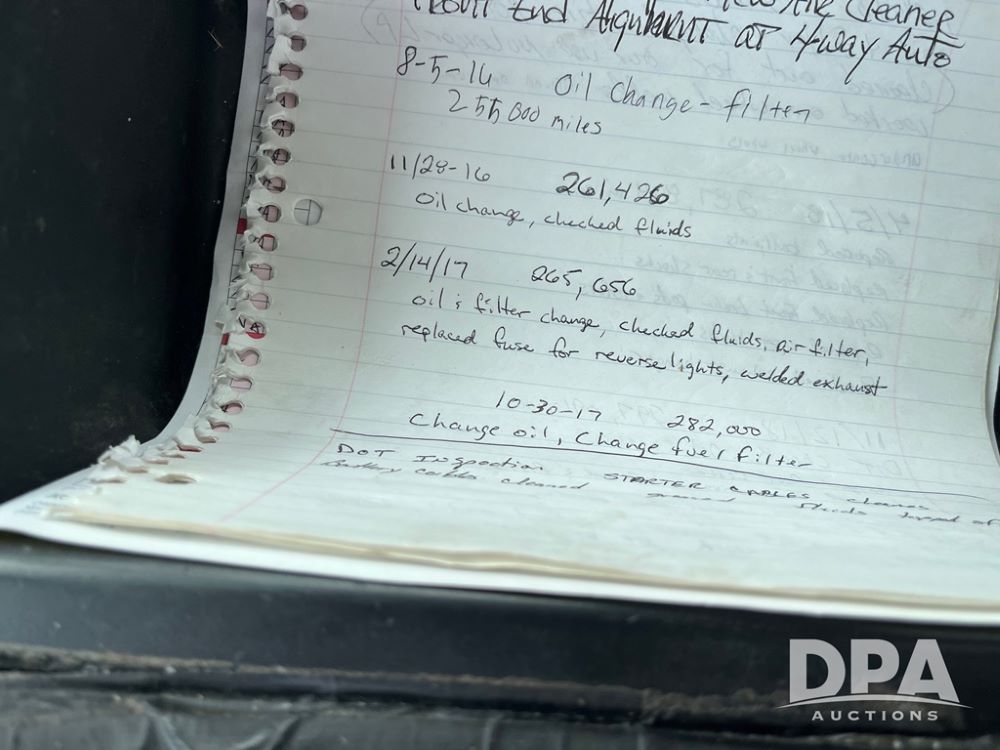 Cleaner
Front End Alignment AT 4way Auto
8-5-16 Oil Change - filter
255,000 miles
11/28-16 261,426
Oil change, checked fluids
2/14/17 265,656
oil & filter change, checked fluids, air filter,
replaced fuse for reverse lights, welded exhaust
10-30-17 282,000
Change oil, Change fuel filter
DOT Inspection STARTER CABLES, cleaned
Battery cables cleaned ground fluids topped off
DPA
AUCTIONS